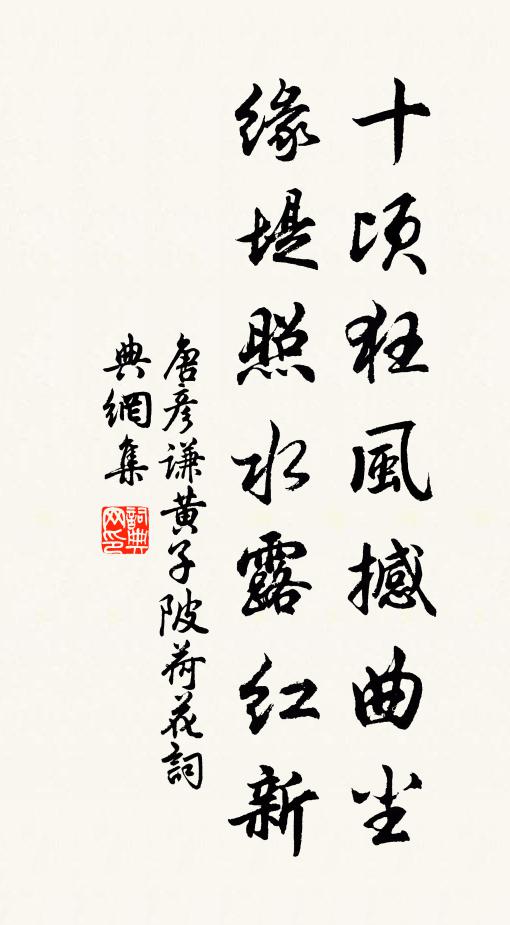 十顷狂風撼曲尘
緣堤照水露红新
唐彦谦黄子陂荷花詞
典網集
詞典网印